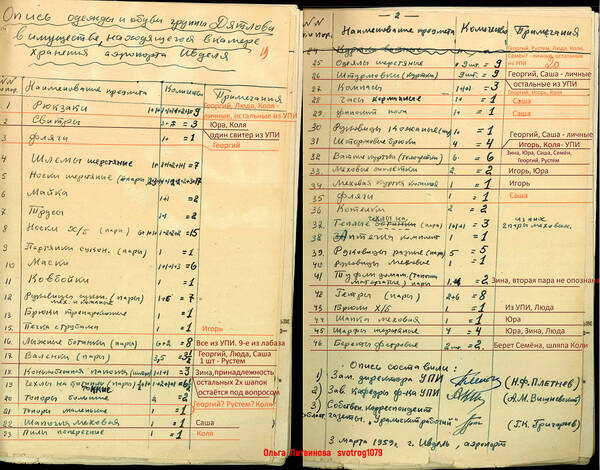 Опись одежды и обуви группы Дятлова
в имуществе, находящегося в камере
хранения аэропорта Ивделя
19
N/N по пор. Наименование предмета Количес Примечания
1 Рюкзаки = 9 Георгий, Люда, Коля - личные, остальные из УПИ
2 Свитры = 3 Юра, Коля
один свитер из УПИ
3 фляги 1+ = 1 Георгий
4 Шлемы шерстяные = 7
5 Носки шерстяные (пары)
6 Майка = 2
7 Трусы = 2
8 Носки х/б (пары) = 15
9 Портянки сукон. (пары) 1 = 1
10 Маски = 6
11 Ковбойки 1 = 1
12 Рукавицы сукон. (пары) 1+6 = 7
13 Брюки тренировочные 1 = 1
15 Печка с трубами 1 = 1 Игорь
16 Лыжные ботинки (пары) 6+2 = 8 Все из УПИ. 9-е из лабаза
17 Валенки (пары) 3,5 Георгий, Люда, Саша
1 шт - Рустем
18 = 3 Зина,принадлежность
19 Чехлы на ботинки (пары) остальных 2х шапок
остаётся под вопросом
20 Топоры большие 2 = 2
21 Топоры маленькие 1 = 1 Георгий? Рустем? Коля?
22 Шапочка меховая 1 = 1 Саша
23 Пилы поперечные 1 = 1 Коля
- 2 -
N/N по пор. Наименование предмета Количес Примечания
24 Георгий, Рустем, Люда, Коля,
Семён? -личные, остальные из УПИ
20
25 Одеяло шерстяные 9 шт. = 9
26 Штурмовки (куртки) 9 шт. = 9 Георгий, Саша - личные
остальные из УПИ
27 Компасы 1+1+1 = 3 Георгий, Игорь, Коля
28 Часы карманные 1 = 1 Саша
29 финский нож 1 = 1 Саша
30 Рукавицы кожаные 1 = 1
31 Штормовые брюки 4 = 4 Георгий, Саша - личные
Игорь, Коля- УПИ
32 Ватные куртки (телогрейки) 6 = 6 Зина, Юра, Саша, Семён,
Георгий, Рустем
33 Меховые жилетки 2 = 2 Игорь, Юра
34 Меховая куртка кожаная 1 = 1 Игорь
35 фляги 1 = 1 Саша
36 Котелки 2 = 2
37 Теплые чехлы на ботинки (пары) 1+1+1 = 3 из них
2 пары меховых.
38 Аптечка комплект 1 = 1
39 Рукавицы разные (пары) 5 = 5
40 Рукавицы меховые 1 = 1
41 Туфли домаш. (тапочки матерчатые) пары = 2 Зина, вторая пара не опознан
42 Гетры (пары) 2+6 = 8
43 Брюки х/б 1 = 1 Из УПИ, Люда
44 Шапка меховая 1 = 1 Юра
45 Шарфы шерстяные 4 = 4 Юра, Зина, Люда
46 Береты фетровые 2 шт. = 2 Берет Семёна, шляпа Коли
Опись составили:
1) Зам. директора УПИ (Н.Ф.Плетнев)
2) Зав. Кафедры ф-ка УПИ (А.М.Вишневский)
3) Собствен. корреспондент
област. газеты „Уральский рабочий" (Г.К.Григорьев)
3 марта 1959г. г. Ивдель, аэропорт
Ольга Литвинова svotrog1079